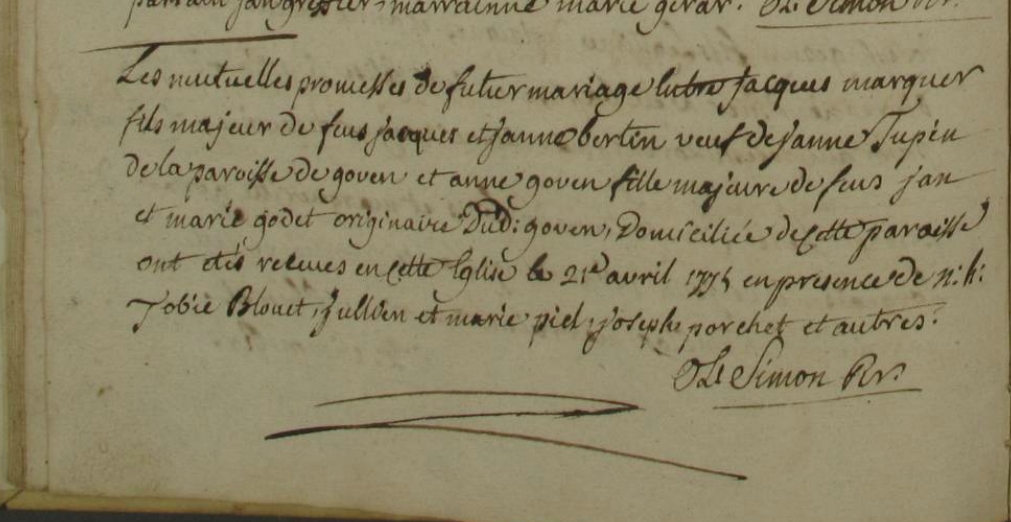 parrain jan gressier, marrainne marie gerar. Simon Rr.
Les mutuelles promesses de futur mariage Entre Jacques marquer
fils majeur de feus jacques et janne bertin veuf de janne Tupin
de la paroisse de goven et anne goven fille majeure de feus jan
et marie godet originaire Dud: goven, Domiciliée de cette paroisse
ont etés receues en cette Eglise le 21e avril 1775 en presence de n: h:
Tobie Blouet, jullien et marie piel, joseph porchet et autres.
Simon Rr.